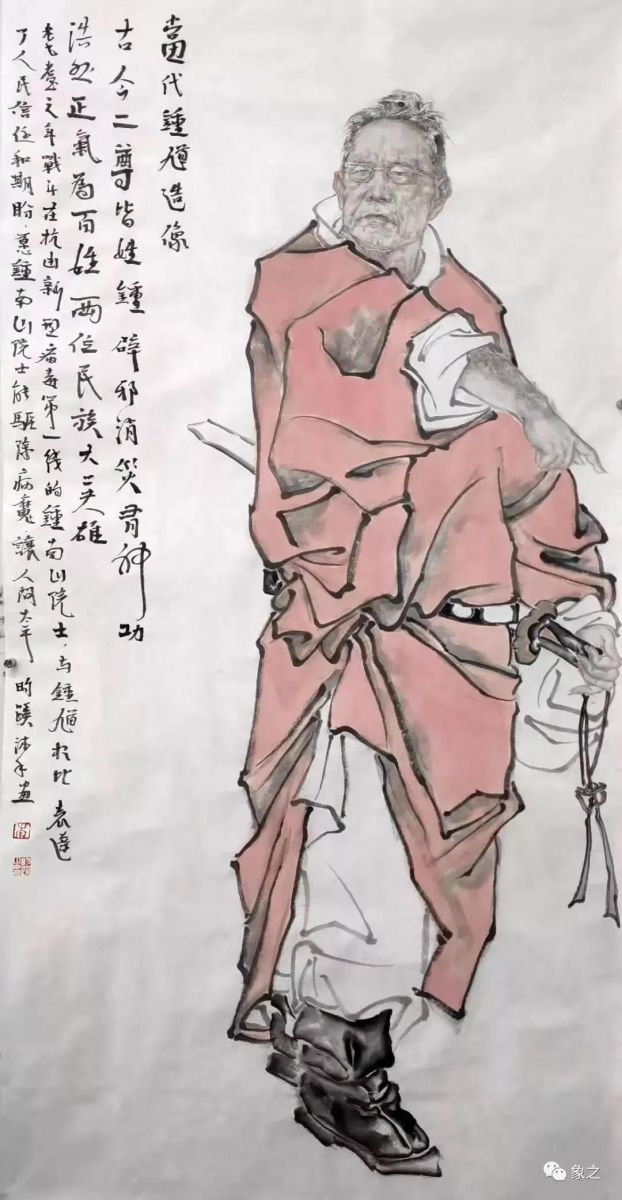 當代鍾馗造像
古今二尊皆姓鍾 辟邪消災有神功
浩然正氣為百姓 两位民族大英雄
耄耋之年戰斗在抗击新型病毒第一线的鍾南山院士，与鍾馗相比表達
了人民信任和期盼，愿鍾南山院士能驅除病魔，讓人間太平 画
象之